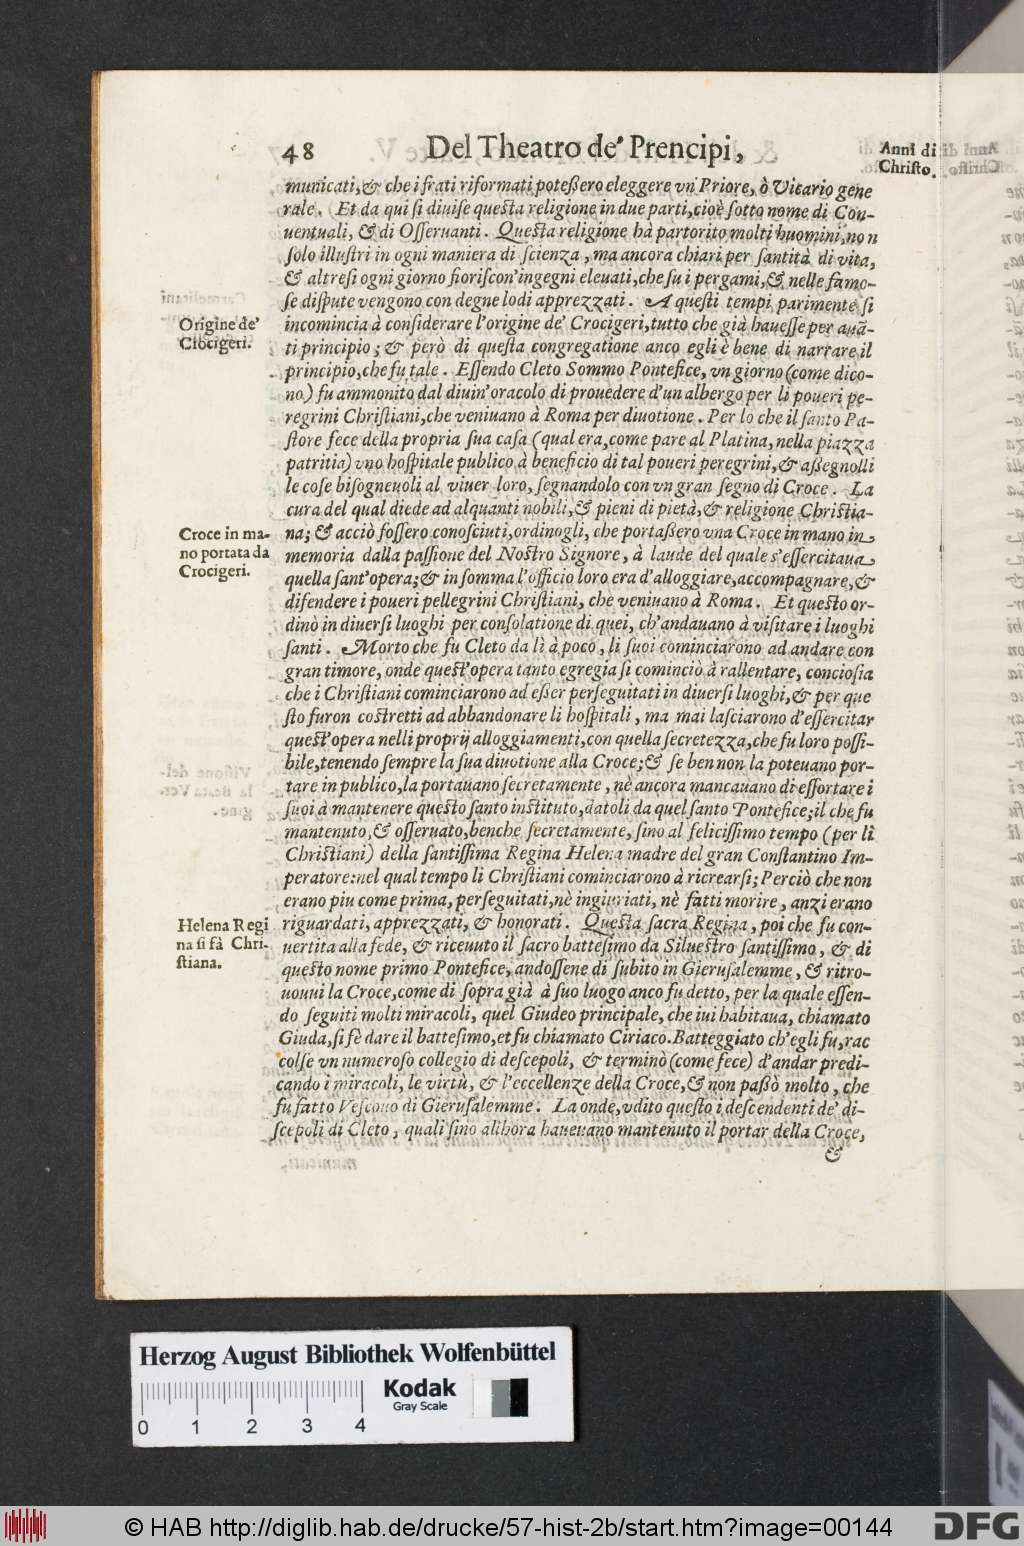 48 Del Theatro de' Prencipi,
Anni di
Christo.
municati, & che i frati riformati poteßero eleggere vn Priore, ò Vicario gene
rale. Et da qui si diuise questa religione in due parti, cioè sotto nome di Con-
uentuali, & di Osseruanti. Questa religione hà partorito molti huomini, non
solo illustri in ogni maniera di scienza, ma ancora chiari per santità di vita,
& altresi ogni giorno fioriscon'ingegni eleuati, che su i pergami, & nelle famo-
se dispute vengono con degne lodi apprezzati. A questi tempi parimente si
Origine de'
Crocigeri.
incomincia à considerare l'origine de' Crocigeri, tutto che già hauesse per auã-
ti principio; & però di questa congregatione anco egli è bene di narrare il
principio, che fu tale. Essendo Cleto Sommo Pontefice, vn giorno (come dico-
no) fu ammonito dal diuin'oracolo di prouedere d'un albergo per li poueri pe-
regrini Christiani, che veniuano à Roma per diuotione. Per lo che il santo Pa-
store fece della propria sua casa (qual era, come pare al Platina, nella piazza
patritia) vno hospitale publico à beneficio di tal poueri peregrini, & aßegnolli
le cose bisogneuoli al viuer loro, segnandolo con vn gran segno di Croce. La
cura del qual diede ad alquanti nobili, & pieni di pietà, & religione Christia-
Croce in ma-
no portata da
Crocigeri.
na; & acciò fossero conosciuti, ordinogli, che portaßero vna Croce in mano in
memoria dalla passione del Nostro Signore, à laude del quale s'essercitaua
quella sant'opera; & in somma l'officio loro era d'alloggiare, accompagnare, &
difendere i poueri pellegrini Christiani, che veniuano à Roma. Et questo or-
dinò in diuersi luoghi per consolatione di quei, ch'andauano à visitare i luoghi
santi. Morto che fu Cleto da lì à poco, li suoi cominciarono ad andare con
gran timore, onde quest'opera tanto egregia si cominciò à rallentare, conciosia
che i Christiani cominciarono ad eßer perseguitati in diuersi luoghi, & per que
sto furon costretti ad abbandonare li hospitali, ma mai lasciarono d'essercitar
quest'opera nelli proprij alloggiamenti, con quella secretezza, che fu loro possi-
bile, tenendo sempre la sua diuotione alla Croce; & se ben non la poteuano por-
tare in publico, la portauano secretamente, nè ancora mancauano di essortare i
suoi à mantenere questo santo instituto, datoli da quel santo Pontefice; il che fu
mantenuto, & osseruato, benche secretamente, sino al felicissimo tempo (per li
Christiani) della santissima Regina Helena madre del gran Constantino Im-
peratore: nel qual tempo li Christiani cominciarono à ricrearsi; Perciò che non
erano piu come prima, perseguitati, nè ingiuriati, nè fatti morire, anzi erano
Helena Regi
na si fà Chri-
stiana.
riguardati, apprezzati, & honorati. Questa sacra Regina, poi che fu con-
uertita alla fede, & riceuuto il sacro battesimo da Siluestro santissimo, & di
questo nome primo Pontefice, andossene di subito in Gierusalemme, & ritro-
uouui la Croce, come di sopra già à suo luogo anco fu detto, per la quale essen-
do seguiti molti miracoli, quel Giudeo principale, che iui habitaua, chiamato
Giuda, si fè dare il battesimo, et fu chiamato Ciriaco. Batteggiato ch'egli fu, rac
colse vn numeroso collegio di descepoli, & terminò (come fece) d'andar predi-
cando i miracoli, le virtù, & l'eccellenze della Croce, & non paßò molto, che
fu fatto Vescouo di Gierusalemme. La onde, vdito questo i descendenti de' di-
scepoli di Cleto, quali sino allhora haueuano mantenuto il portar della Croce,
&
Herzog August Bibliothek Wolfenbüttel
Kodak
Gray Scale
0 1 2 3 4
© HAB http://diglib.hab.de/drucke/57-hist-2b/start.htm?image=00144
DFG